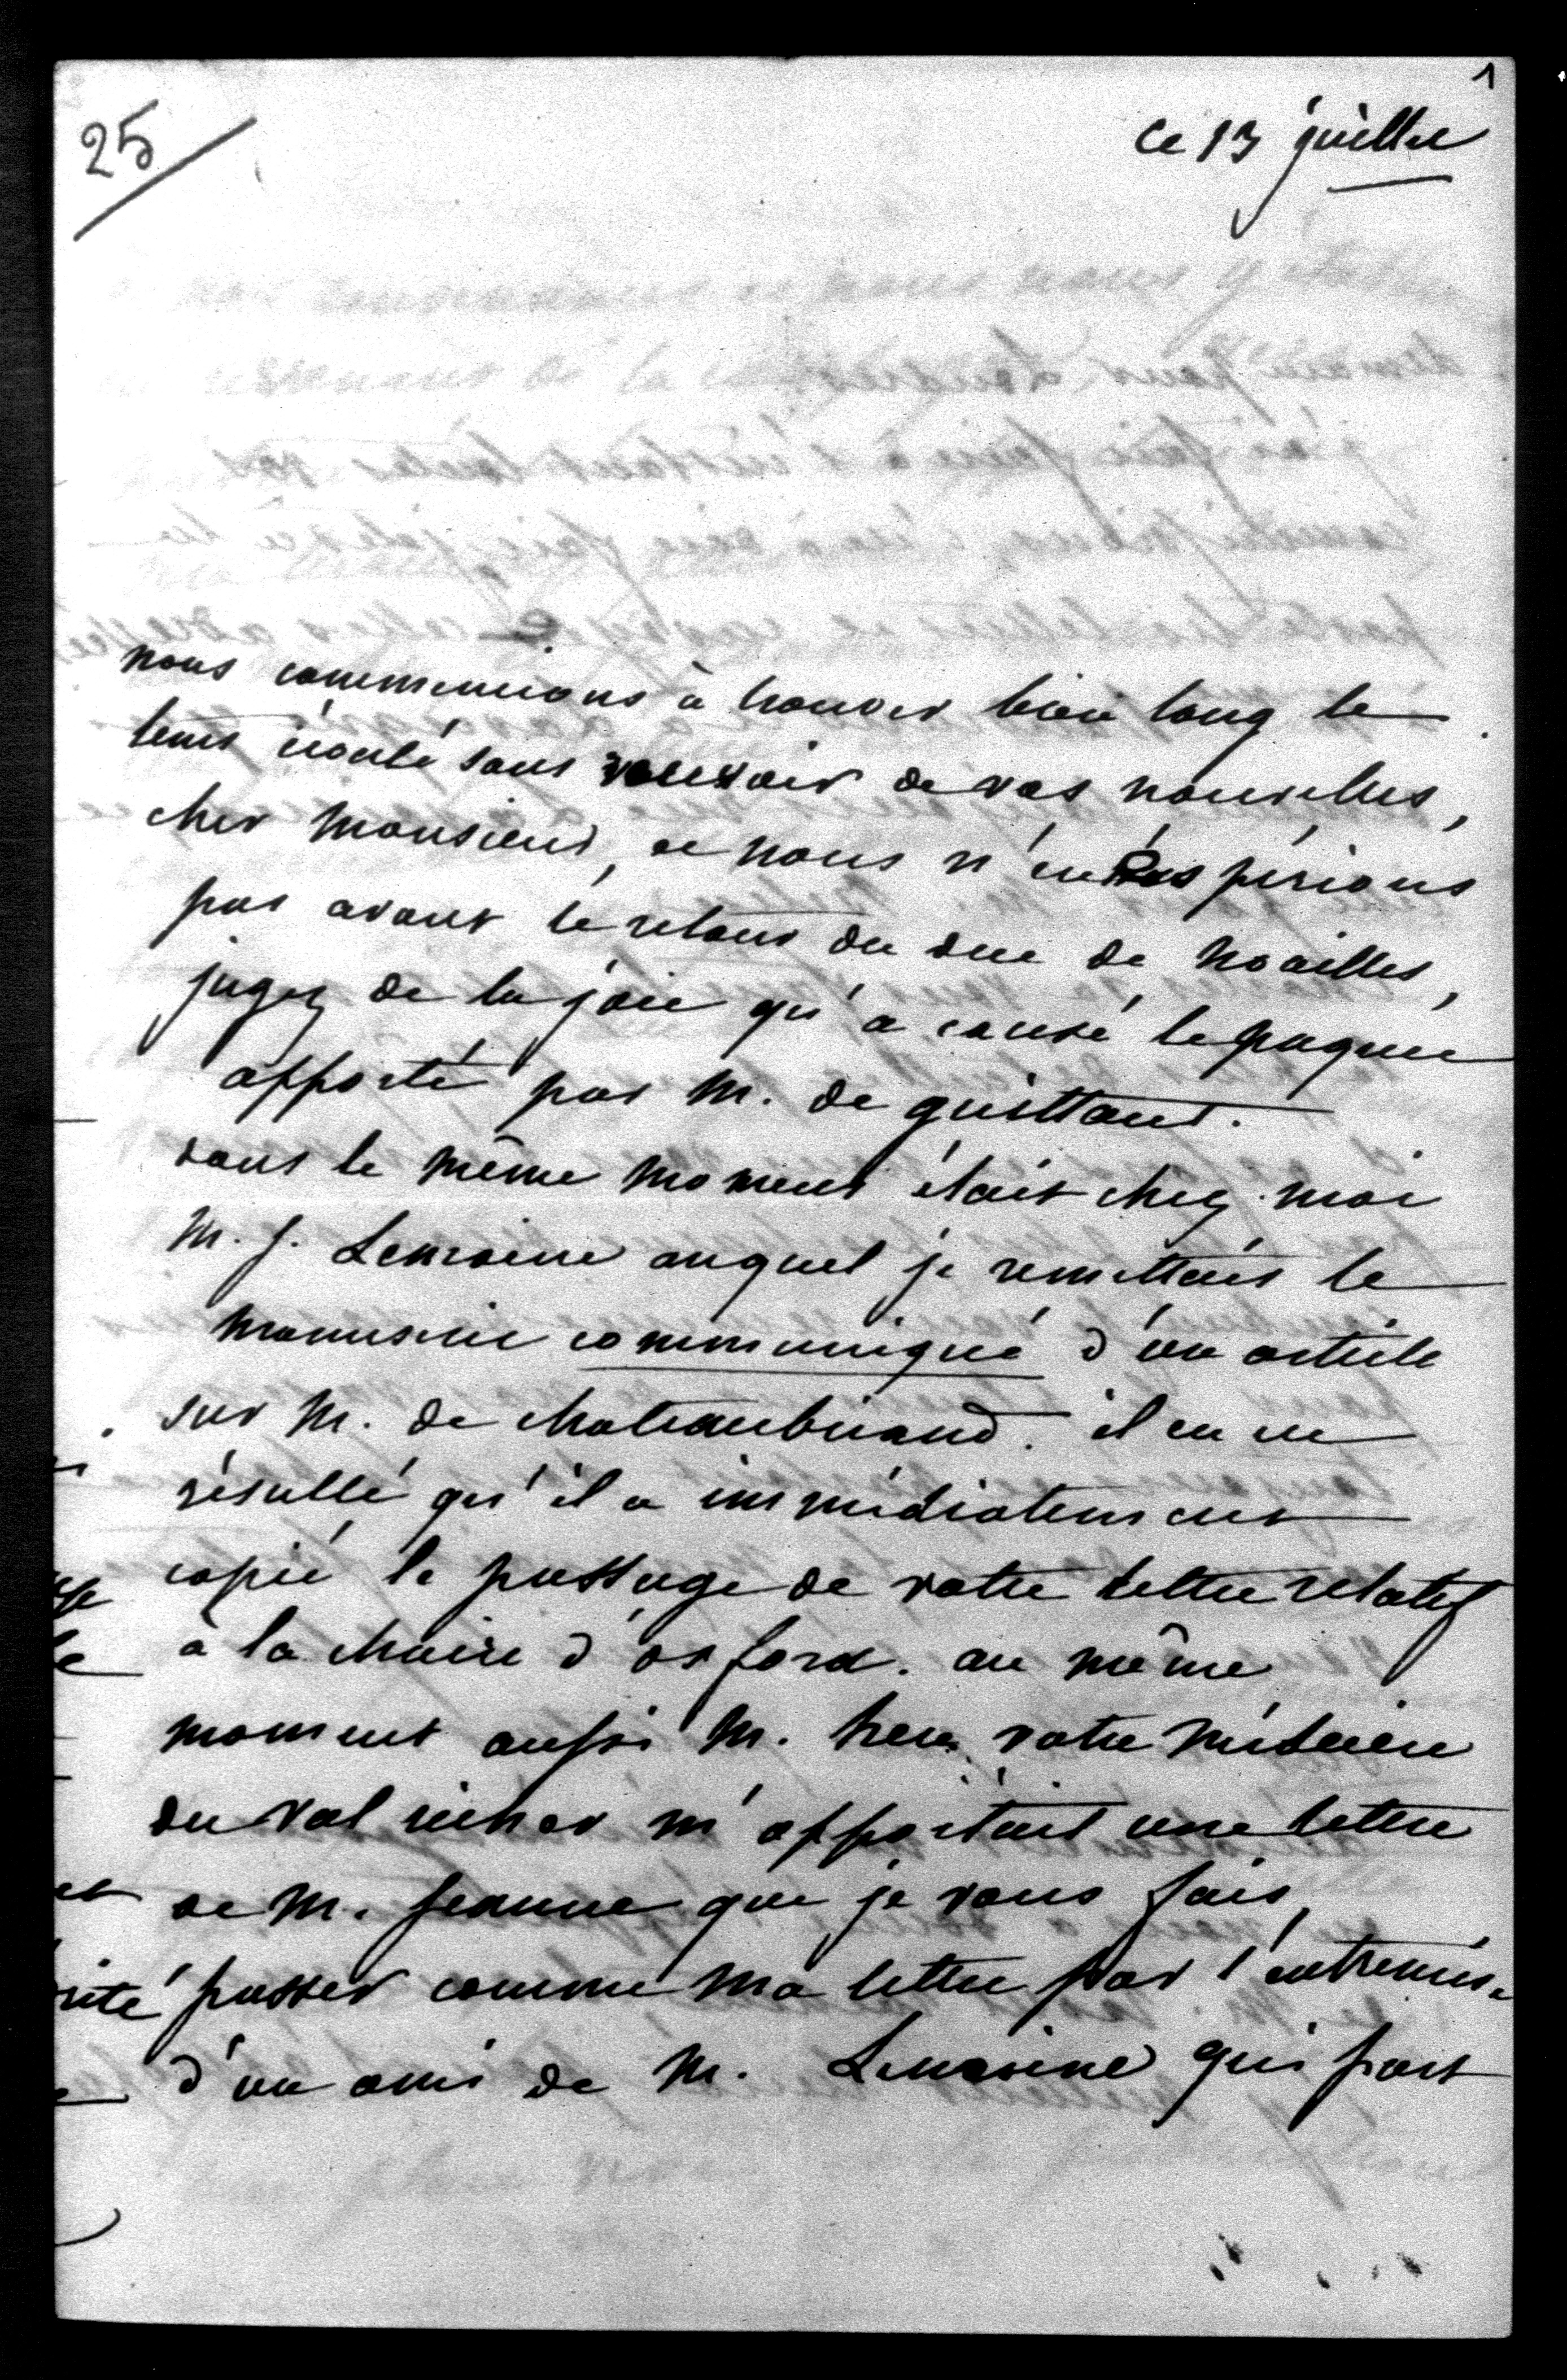 1
25
Ce 13 juillet
nous commencions à trouver bien long le
tems écoulé sans recevoir de vos nouvelles,
cher Monsieur, et nous n'en espérions
pas avant le retour du duc de Noailles,
jugez de la joie qu'a causé le paquet
apporté par M. de
dans le même moment était chez moi
M. J. Lemoine auquel je remettais le
manuscrit communiqué d'un article
sur M. de Chateaubriand. il en est
résulté qu'il a immédiatement
copié le passage de votre lettre relatif
à la chaire d'oxford. au même
moment aussi M. votre médecin
du val richer m'apportait une lettre
de M. Jeanne que je vous fais
passer comme ma lettre par l'entremise
d'un ami de M. Lemoine qui part